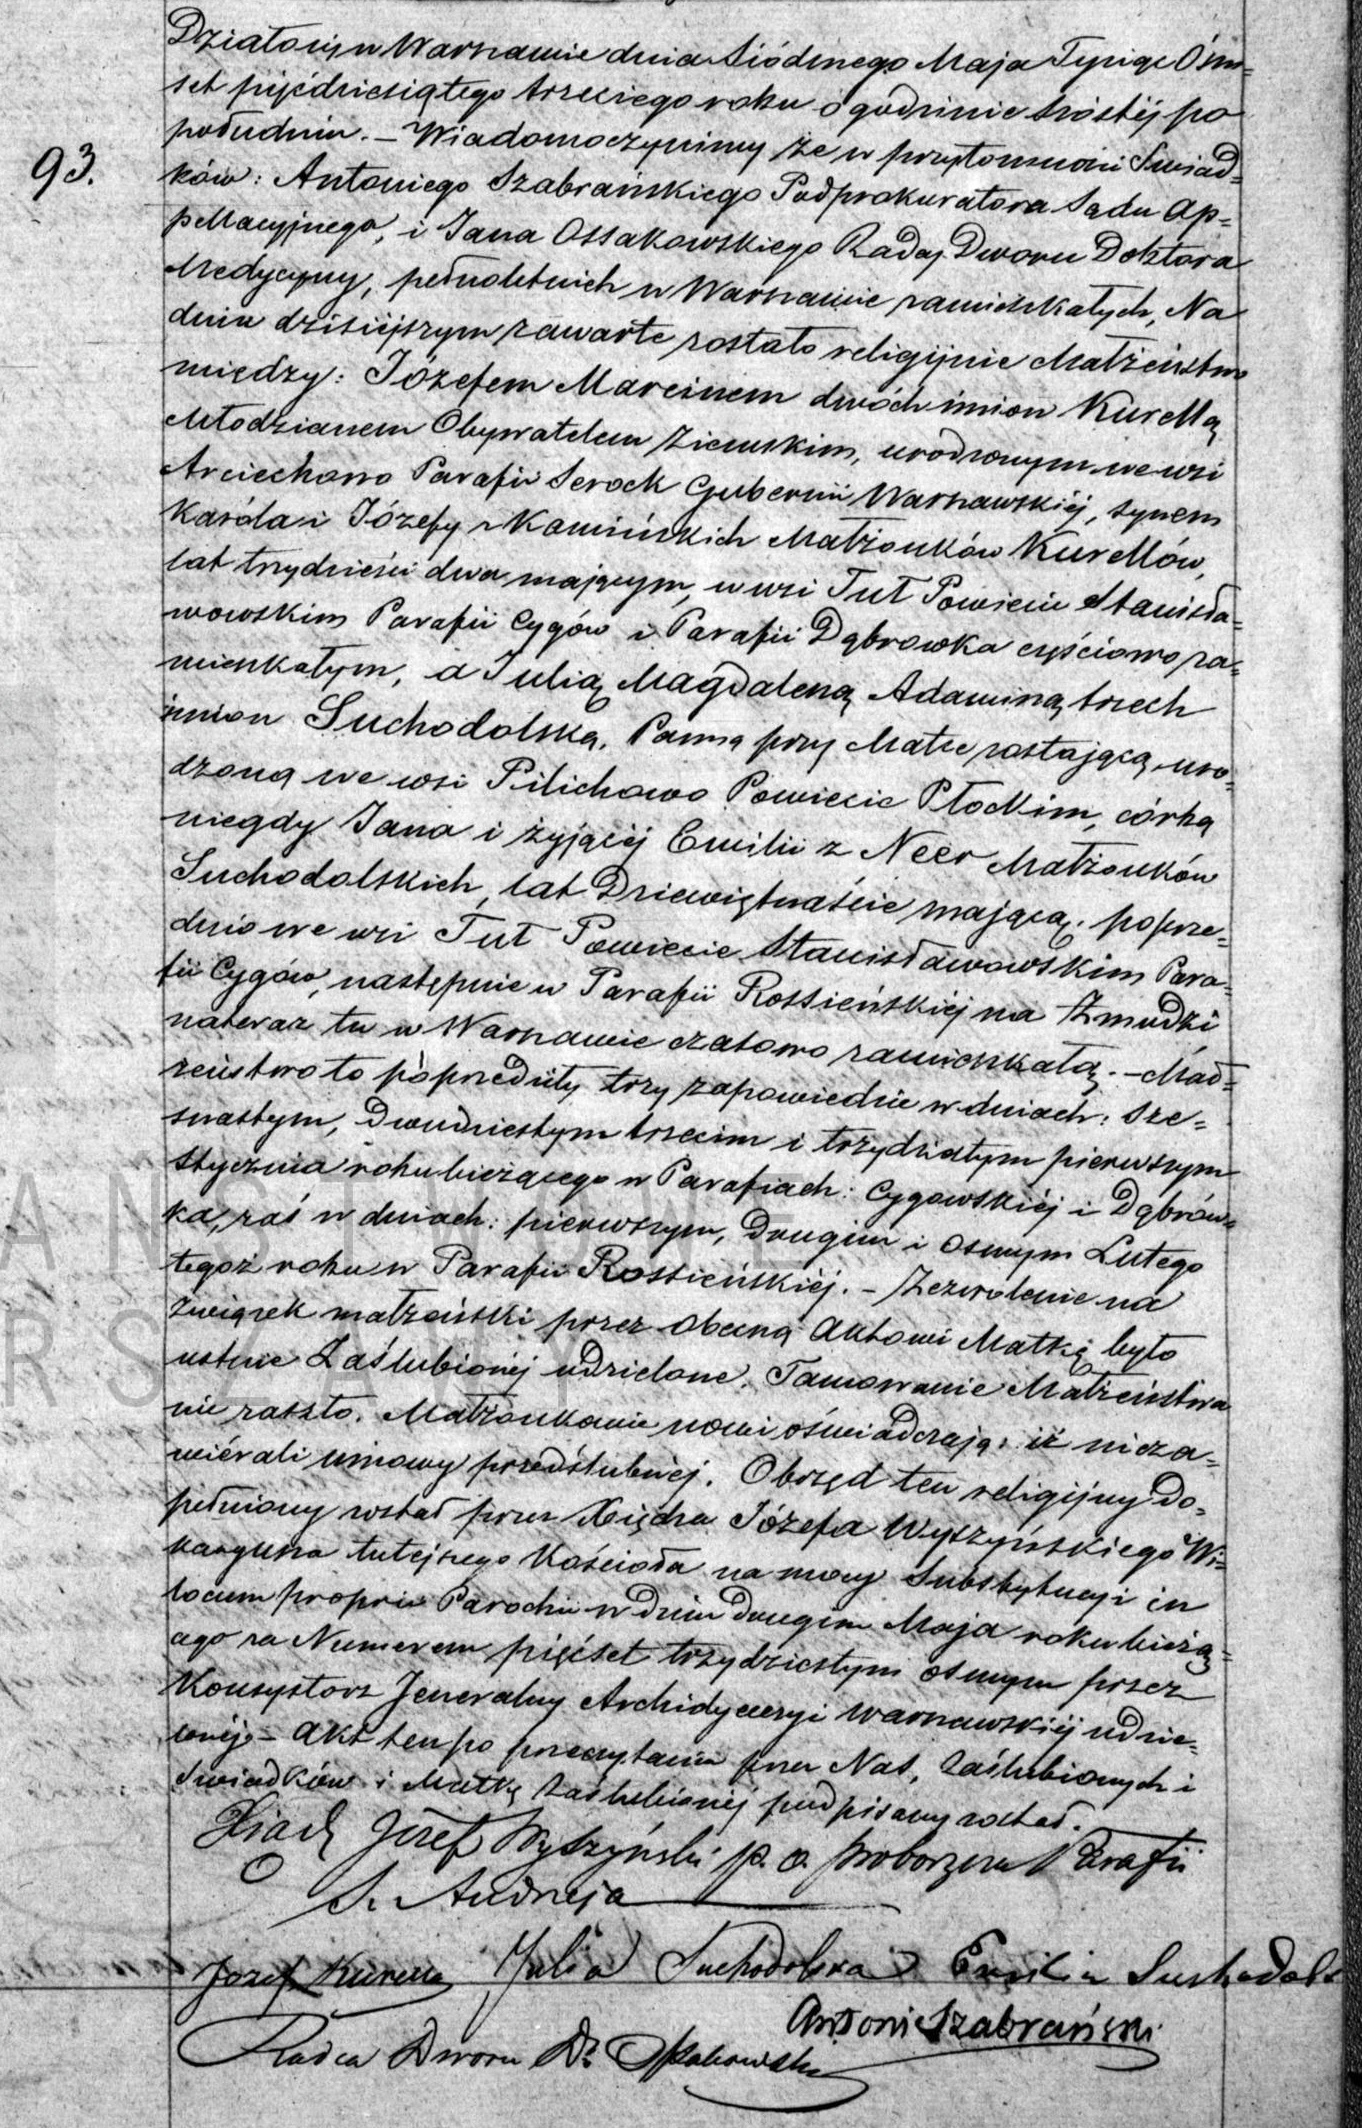 93.
Działo się w Warszawie dnia Siódmego Maja Tysiąc Ośm=
set pięćdziesiątego trzeciego roku o godzinie szóstéj po
południu. – Wiadomo czynimy że w przytomności Świad=
ków: Antoniego Szabrańskiego Podprokuratora Sądu Ap=
pellacyjnego, i Jana Ossakowskiego Radcy Dworu Doktora
Medycyny, pełnoletnich w Warszawie zamieszkałych, Na
dniu dzisiejszym zawarte zostało religijnie Małżeństwo
między: Józefem Marcinem dwóch imion Kurellą
Młodzianem Obywatelem Ziemskim, urodzonym we wsi
Arciechowo Parafii Serock Gubernii Warszawskiéj, synem
Karóla i Józefy z Kamińskich Małżonków Kurellów,
lat trzydzieści dwa mającym, w wsi Tut Powiecie Stanisła=
wowskim Parafii Cygów i Parafii Dąbrowka częściowo za=
mieszkałym, a Julią Magdaleną Adaminą trzech
imion Suchodolską, Panną przy Matce zostającą, uro=
dzoną we wsi Pilichowo Powiecie Płockim, córką
niegdy Jana i żyjącéj Emilii z Neer Małżonków
Suchodolskich, lat Dziewiętnaście mającą, poprze=
dnio we wsi Tut Powiecie Stanisławowskim Para=
fii Cygów, następnie w Parafii Rossieńskiéj na Żmudzi
nateraz tu w Warszawie czasowo zamieszkałą. – Mał=
żeństwo to poprzedziły trzy zapowiedzie w dniach: sze=
snastym, Dwudziestym trzecim i trzydziestym pierwszym
Stycznia roku bieżącego w Parafiach: Cygowskiéj i Dąbrów=
ka, zaś w dniach: pierwszym, Drugim i osmym Lutego
tegoż roku w Parafii Rossieńskiéj. – Zezwolenie na
Związek małżeński przez obecną Aktowi Matkę było
ustnie Zaślubionéj udzielone. Tamowanie Małżeństwa
nie zaszło. Małżonkowie nowi oświadczają: iż nie za=
wiérali umowy przedślubnéj. Obrzęd ten religijny do=
pełniony został przez Xiędza Józefa Wyszyńskiego Wi=
karyusza tutejszego Kościoła na mocy Substytucyi in
locum proprii Parochi w dniu drugim Maja roku bieżą=
cego za Numerem pięćset trzydziestym osmym przez
Konsystorz Jeneralny Archidyecezyi Warszawskiéj udzie=
lonéj. – Akt ten po przeczytaniu przez Nas, Zaślubionych i
Świadków i Matkę Zaślubionéj podpisany został.
Xiądz Józef Wyszyński p. o. Proboszcza Parafii
S. Andrzeja
Jozef Kurella Julia Suchodolska Emilia Suchodols
Antoni Szabrański
Radca Dworu Dr Ossakowski
ANSTWOWE
RSZAWY